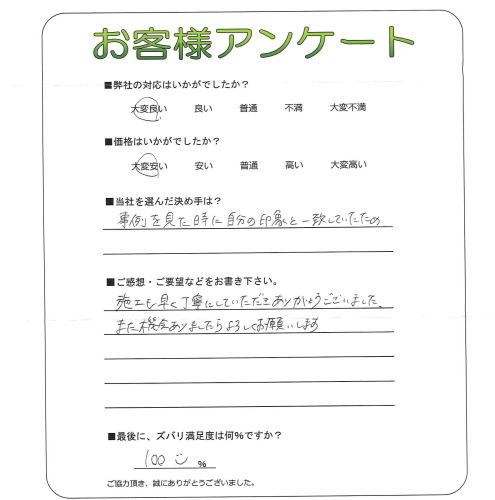 お客様アンケート
■弊社の対応はいかがでしたか？
大変良い 良い 普通 不満 大変不満
■価格はいかがでしたか？
大変安い 安い 普通 高い 大変高い
■当社を選んだ決め手は？
事例を見た時に自分の印象と一致していたため
■ご感想・ご要望などをお書き下さい。
施工も早く丁寧にしていただきありがとうございました。
また機会ありましたらよろしくお願いします
■最後に、ズバリ満足度は何%ですか？
100 %
ご協力頂き、誠にありがとうございました。